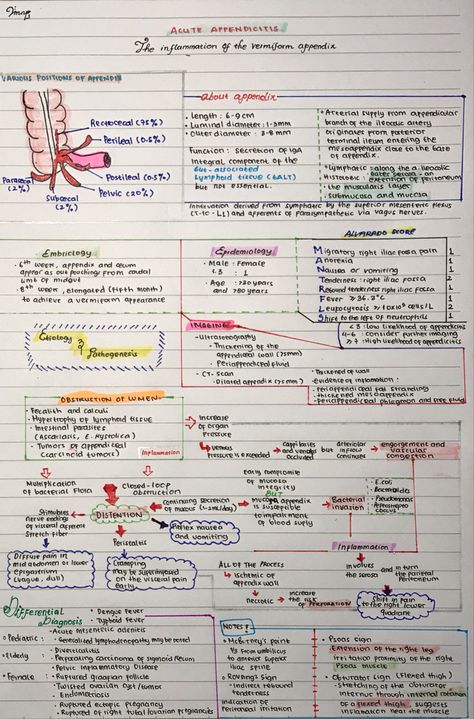 ACUTE APPENDICITIS
The inflammation of the vermiform appendix
VARIOUS POSITIONS OF APPENDIX
Rectocecal (75%)
Perileal (0.5%)
Postileal (0.5%)
Pelvic (20%)
Paracecal
(2%)
Subcecal
(2%)
about appendix
• Length: 6-9 cm
• Luminal diameter: 1-3mm
• Outer diameter: 3-8 mm
Function: secretion of IgA
Integral component of the
Gut-associated
lymphoid tissue (GALT)
but not essential.
• Arterial supply from appendicular
branch of the ileocolic artery
originates from posterior
terminal ileum entering the
mesoappendix close to the base
of appendix.
• Lymphatic: along the a. ileocolic
extension of peritoneum
the muscularis layer
submucosa and mucosa
Innervation derived from sympathetic by the superior mesenteric plexus
(T10-L1) and afferents of parasympathetic via vagus nerves.
Embriology
• 6th week, appendix and cecum
appear as out pouchings from caudal
limit of midgut
• 8th week, elongated (fifth month)
to achieve a vermiform appearance
Epidemiology
• Male : Female
1.3 : 1
• Age : >30 years
and >80 years
ALVARADO SCORE
Migratory right iliac fossa pain 1
Anorexia 1
Nausea or vomiting 1
Tenderness: right iliac fossa 2
Rebound tenderness right iliac fossa 1
Fever ≥ 36.3°C 1
Leucocytosis ≥10x10⁹ cells/L 2
Shift to the left of neutrophils 1
< 3 : low likelihood of appendicitis
4-6 : consider further imaging
≥ 7 : High likelihood of appendicitis
Etiology
&
Pathogenesis
IMAGING
• Ultrasonography
- Thickening of the
appendiceal wall (>5mm)
- Periappendiceal fluid
• CT-Scan
- Dilated appendix (>5mm)
• Thickened of wall
• Evidence of inflamation:
- periappendiceal fat stranding
- thickened mesoappendix
- Periappendiceal phlegmon and free fluid
OBSTRUCTION OF LUMEN
• Fecalith and calculi
• Hypertrophy of lymphoid tissue
• Intestinal parasites
(Ascariasis, E. Hystolica)
• Tumors of appendiceal
(Carcinoid tumors)
Increase
of organ
Pressure
venous
Pressure is exceeded
capillaries
and venules
occluded
but
arteriolar
inflow
continues
engorgement and
vascular
congestion
Inflamation
Multiplication
of bacterial flora
Closed-loop
obstruction
DISTENTION
Continuing secretion
of mucous (1-2mL/day)
early compromise
of mucosa
integrity
BUT
Mucosa appendix
is susceptible
to impairment
of blood supply
Bacterial
invasion
• E.coli
• Bacteroides
• Pseudomonas
• Peptostreptococcus
Stimulates
nerve endings
of visceral afferent
Stretch fiber
Peristaltis
Reflex nausea
and vomiting
Diffuse pain in
mid abdomen or lower
epigastrium
(vague, dull)
Cramping
may be superimposed
on the visceral pain
early
ALL OF THE PROCESS
Ischemic of
appendix wall
necrotic
increase
the risk
of PERFORATION
Inflammation
involves
the serosa
and in turn
the parietal
Peritoneum
Shift in pain
to the right lower
quadrant
Differential
Diagnosis
• Dengue fever
• Typhoid fever
• Pediatric :
- Acute mesenteric adenitis
- Generalized lymphadenopathy may be noted
• Elderly :
- Diverticulitis
- Perforating carcinoma of sigmoid/cecum
- Pelvic Inflamatory Disease
• Female :
- Ruptured graafian follicle
- Twisted ovarian cyst/tumor
- Endometriosis
- Ruptured ectopic pregnancy
NOTES!
• McBurney's point
1/3 from umbilicus
to anterior superior
iliac spine
• Rovsing's sign
- Indirect rebound
tenderness
indication of
Peritoneal irritation
• Psoas sign
- Extension of the right leg
- Irritation proximity of the right
Psoas muscle
• Obturator sign (Flexed thigh)
- Stretching of the obturator
internus through internal rotation
of a flexed thigh suggests
inflamation near the muscle